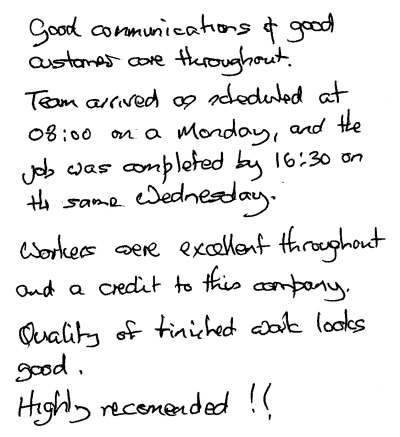 Good communications & good
customer care throughout.
Team arrived as scheduled at
08:00 on a Monday, and the
job was completed by 16:30 on
the same Wednesday.
Workers were excellent throughout
and a credit to this company.
Quality of finished work looks
good.
Highly recomended !!